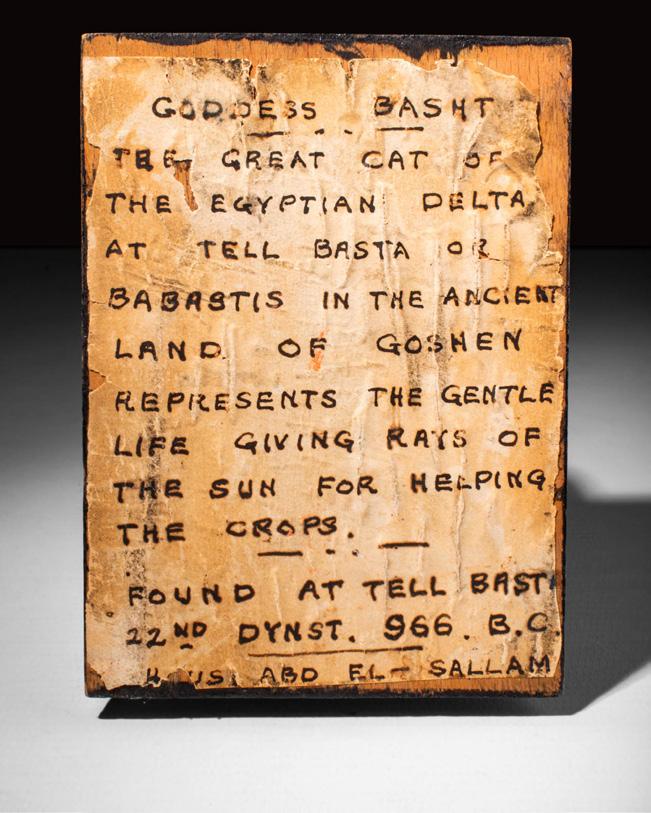 GODDESS BASHT
THE GREAT CAT OF
THE EGYPTIAN DELTA
AT TELL BASTA OR
BABASTIS IN THE ANCIENT
LAND OF GOSHEN
REPRESENTS THE GENTLE
LIFE GIVING RAYS OF
THE SUN FOR HELPING
THE CROPS.
FOUND AT TELL BAST
22ND DYNST. 966. B.C.
ABD EL-SALLAM